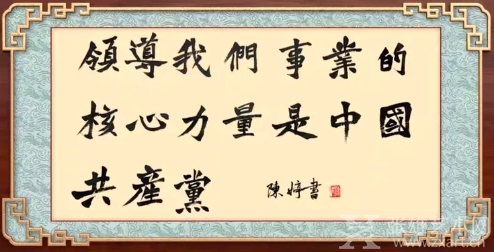 領導我們事業的
核心力量是中國
共產黨
陳婷書
www.zxart.cn